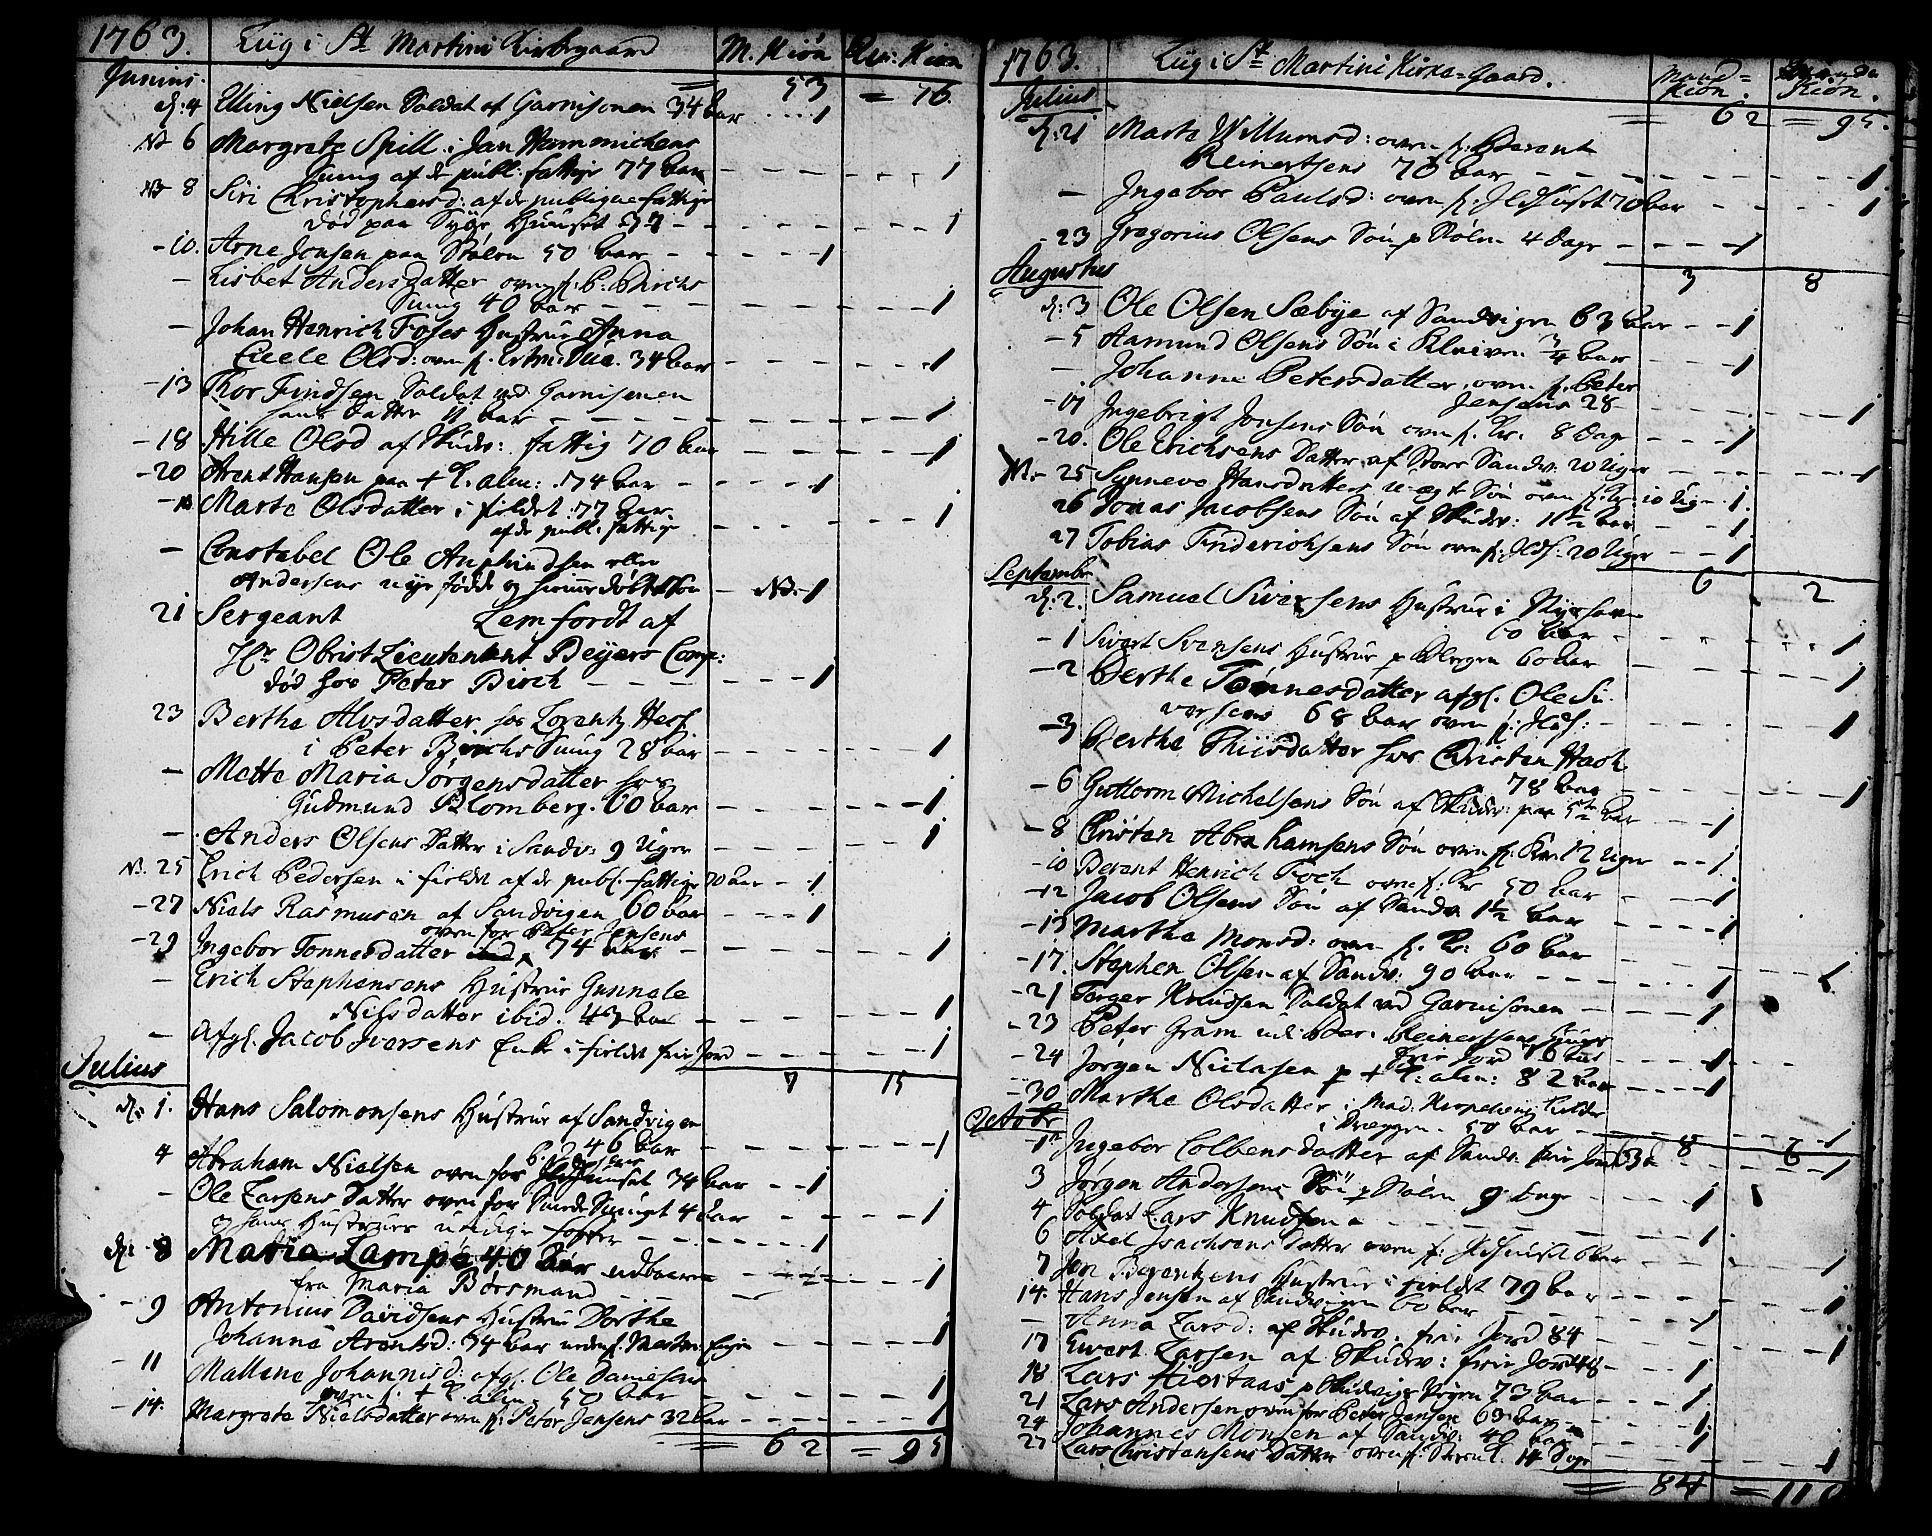 1763. Liig i St Martini Kirkegaard M. Kiön Qu: Kiön
Junius. 53 = 76.
d: 4 Elling Nielsen Soldat af Garnisonen 34 Aar 1
NB 6 Margrete Spill i Jan Hammichens
Smug af de publ. fattige 77 Aar 1
NB 8 Siri Christophersd: af de publiqve fattige
död paa Syge Huuset 57 1
-10. Arne Jonsen paa Stölen 50 Aar 1
- Lisbet Andersdatter oven f. P. Birchs
Smug 40 Aar 1
- Johan Henrich Foses Hustrue Anna
Cicele Olsd: oven f. 34 Aar 1
-13 Thor Findsen Soldat ved Garnisonen
hans Datter Aar 1
-18 Hille Olsd af Skudv: fattig 70 Aar 1
-20 Arent Hansen paa + K. alm: 74 Aar 1
- Marte Olsdatter i fieldet 77 Aar
af de publ. fattige 1
- Constabel Ole Amphindsen eller
Andersens nye födde og hiemmedöbt Sön NB 1
21 Sergeant Lemfordt af
Hr Obrist Lieutenant Beyers Comp:
död hos Peter Birch 1
23 Bertha Alvsdatter hos Lorentz Hess
i Peter Birchs Smug 28 Aar 1
- Mette Maria Jörgensdatter hos
Gudmund Blomberg. 60 Aar 1
- Anders Olsens Datter i Sandv: 9 Uger 1
NB. 25 Erich Pedersen i fieldet af de publ. fattige 70 Aar 1
-27 Niels Rasmusen af Sandvigen 60 Aar 1
oven for Peter Jensens
-29 Ingebor Tonnesdatter 74 Aar 1
- Erich Stephensens Hustrue Gunnele
Nilsdatter ibid. 43 Aar 1
- Afgl. Jacob Iversens Enke i fieldet frie Jord 1
Julius 7 15
d: 1. Hans Salomonsens Hustrue af Sandvigen
46 Aar 1
4 Abraham Nielsen oven for 74 Aar 1
- Ole Larsens Datter oven for Smuget 4 Aar 1
og hans Hustrues foster 1
d: 8 Maria Lampe 40 Aar udbaaren
fra Maria Börsmand 1
-9 Antonius Davidsens Hustrue Dorthe
Johanne Arentsd: 74 Aar 1
-11 Mallene Johannisd: afgl. Ole Danielsens
oven f. + K. alm. 50 Aar 1
-14. Margrete Nielsdatter oven f. Peter Jensens 32 Aar 1
62 = 95
1763. Liig i St Martini Kirke-Gaard. Mand-Kiön. Qvinde Kiön.
Julius 62 = 95.
d: 21 Marte Willumsd: oven f. Berent
Reinertsens 70 Aar 1
- Ingebor Paulsd: oven f. Ildhuset 70 Aar 1
-23 Gregorius Olsens Sön p Stölen 4 Dage 1
Augustus 3 8
d: 3 Ole Olsen Sæbye af Sandvigen 63 Aar 1
-5 Aamund Olsens Sön i Kleiven 3/4 Aar 1
- Johanne Petersdatter oven f. Peter
Jensens 28 1
-17 Ingebrigt Jonsens Sön oven f. Kr. 8 Dage 1
-20. Ole Erichsens Datter af Store Sandv: 20 Uger 1
NB. 25 Synneve Hansdatters u-ægte Sön oven f. 10 Uger 1.
26 Jonas Jacobsens Sön af Skudv: 1 1/2 Aar 1
27 Tobias Friderichsens Sön oven f. Ildh. 20 Uger 1
Septembr 6 2
d: 2. Samuel Siversens Hustrue i Nyehavn
60 Aar 1
-1 Sivert Svensens Hustrue p Bergen 60 Aar 1
-2 Berthe Tönnesdatter afgl. Ole Si-
versens 68 Aar oven f. Ildh: 1
-3 Berthe Thiisdatter hos Christen Hach
78 Aar 1
-6 Guttorm Michelsens Sön af Skudv: paa 5te Aar 1
-8 Christen Abrahamsens Sön oven f. Kr. 12 Uger 1
-10 Berent Henrich Foch oven f. Kr 50 Aar 1
-12 Jacob Olsens Sön af Sandv. 1 1/2 Aar 1
-15 Martha Monsd: oven f. Kr: 60 Aar 1
-17. Stephen Olsen af Sandv: 90 Aar 1
-21 Torger Knudsen Soldat ved Garnisonen 1
-23 Peter Gram ved Ber: Reinertsens Smug
frie Jord 76 Aar 1
-24 Jörgen Nielsen p + K: alm: 82 Aar 1
-30 Marthe Olsdatter i Mad: Kielder
i Dreggen 50 Aar 1
Octobr 8 6
-1 Ingebor Colbensdatter af Sandv. frie Jord 63 1
3 Jörgen Andersens Sön p Stölen 9 Dage 1
4 Soldat Lars Knudsen 1
6 Axel Isachsens Datter oven f. Ildhuset 6 Aar 1
7 Jan Berentzens Hustrue i fieldet 79 Aar 1
14. Hans Jensen af Sandvigen 60 Aar 1
- Anna Larsd: af Skudv. frie Jord 84 1
17 Ewert Larsen af Skudv: frie Jord 48 1
18 Lars Hiertaas p Skudvigs Veyen 73 Aar 1
21 Lars Andersen oven for Peter Jensen 63 Aar 1
24 Johannes Monsen af Sandv: 40 Aar 1
27 Lars Christensens Datter oven f. 14 Dage 1
84 = 110